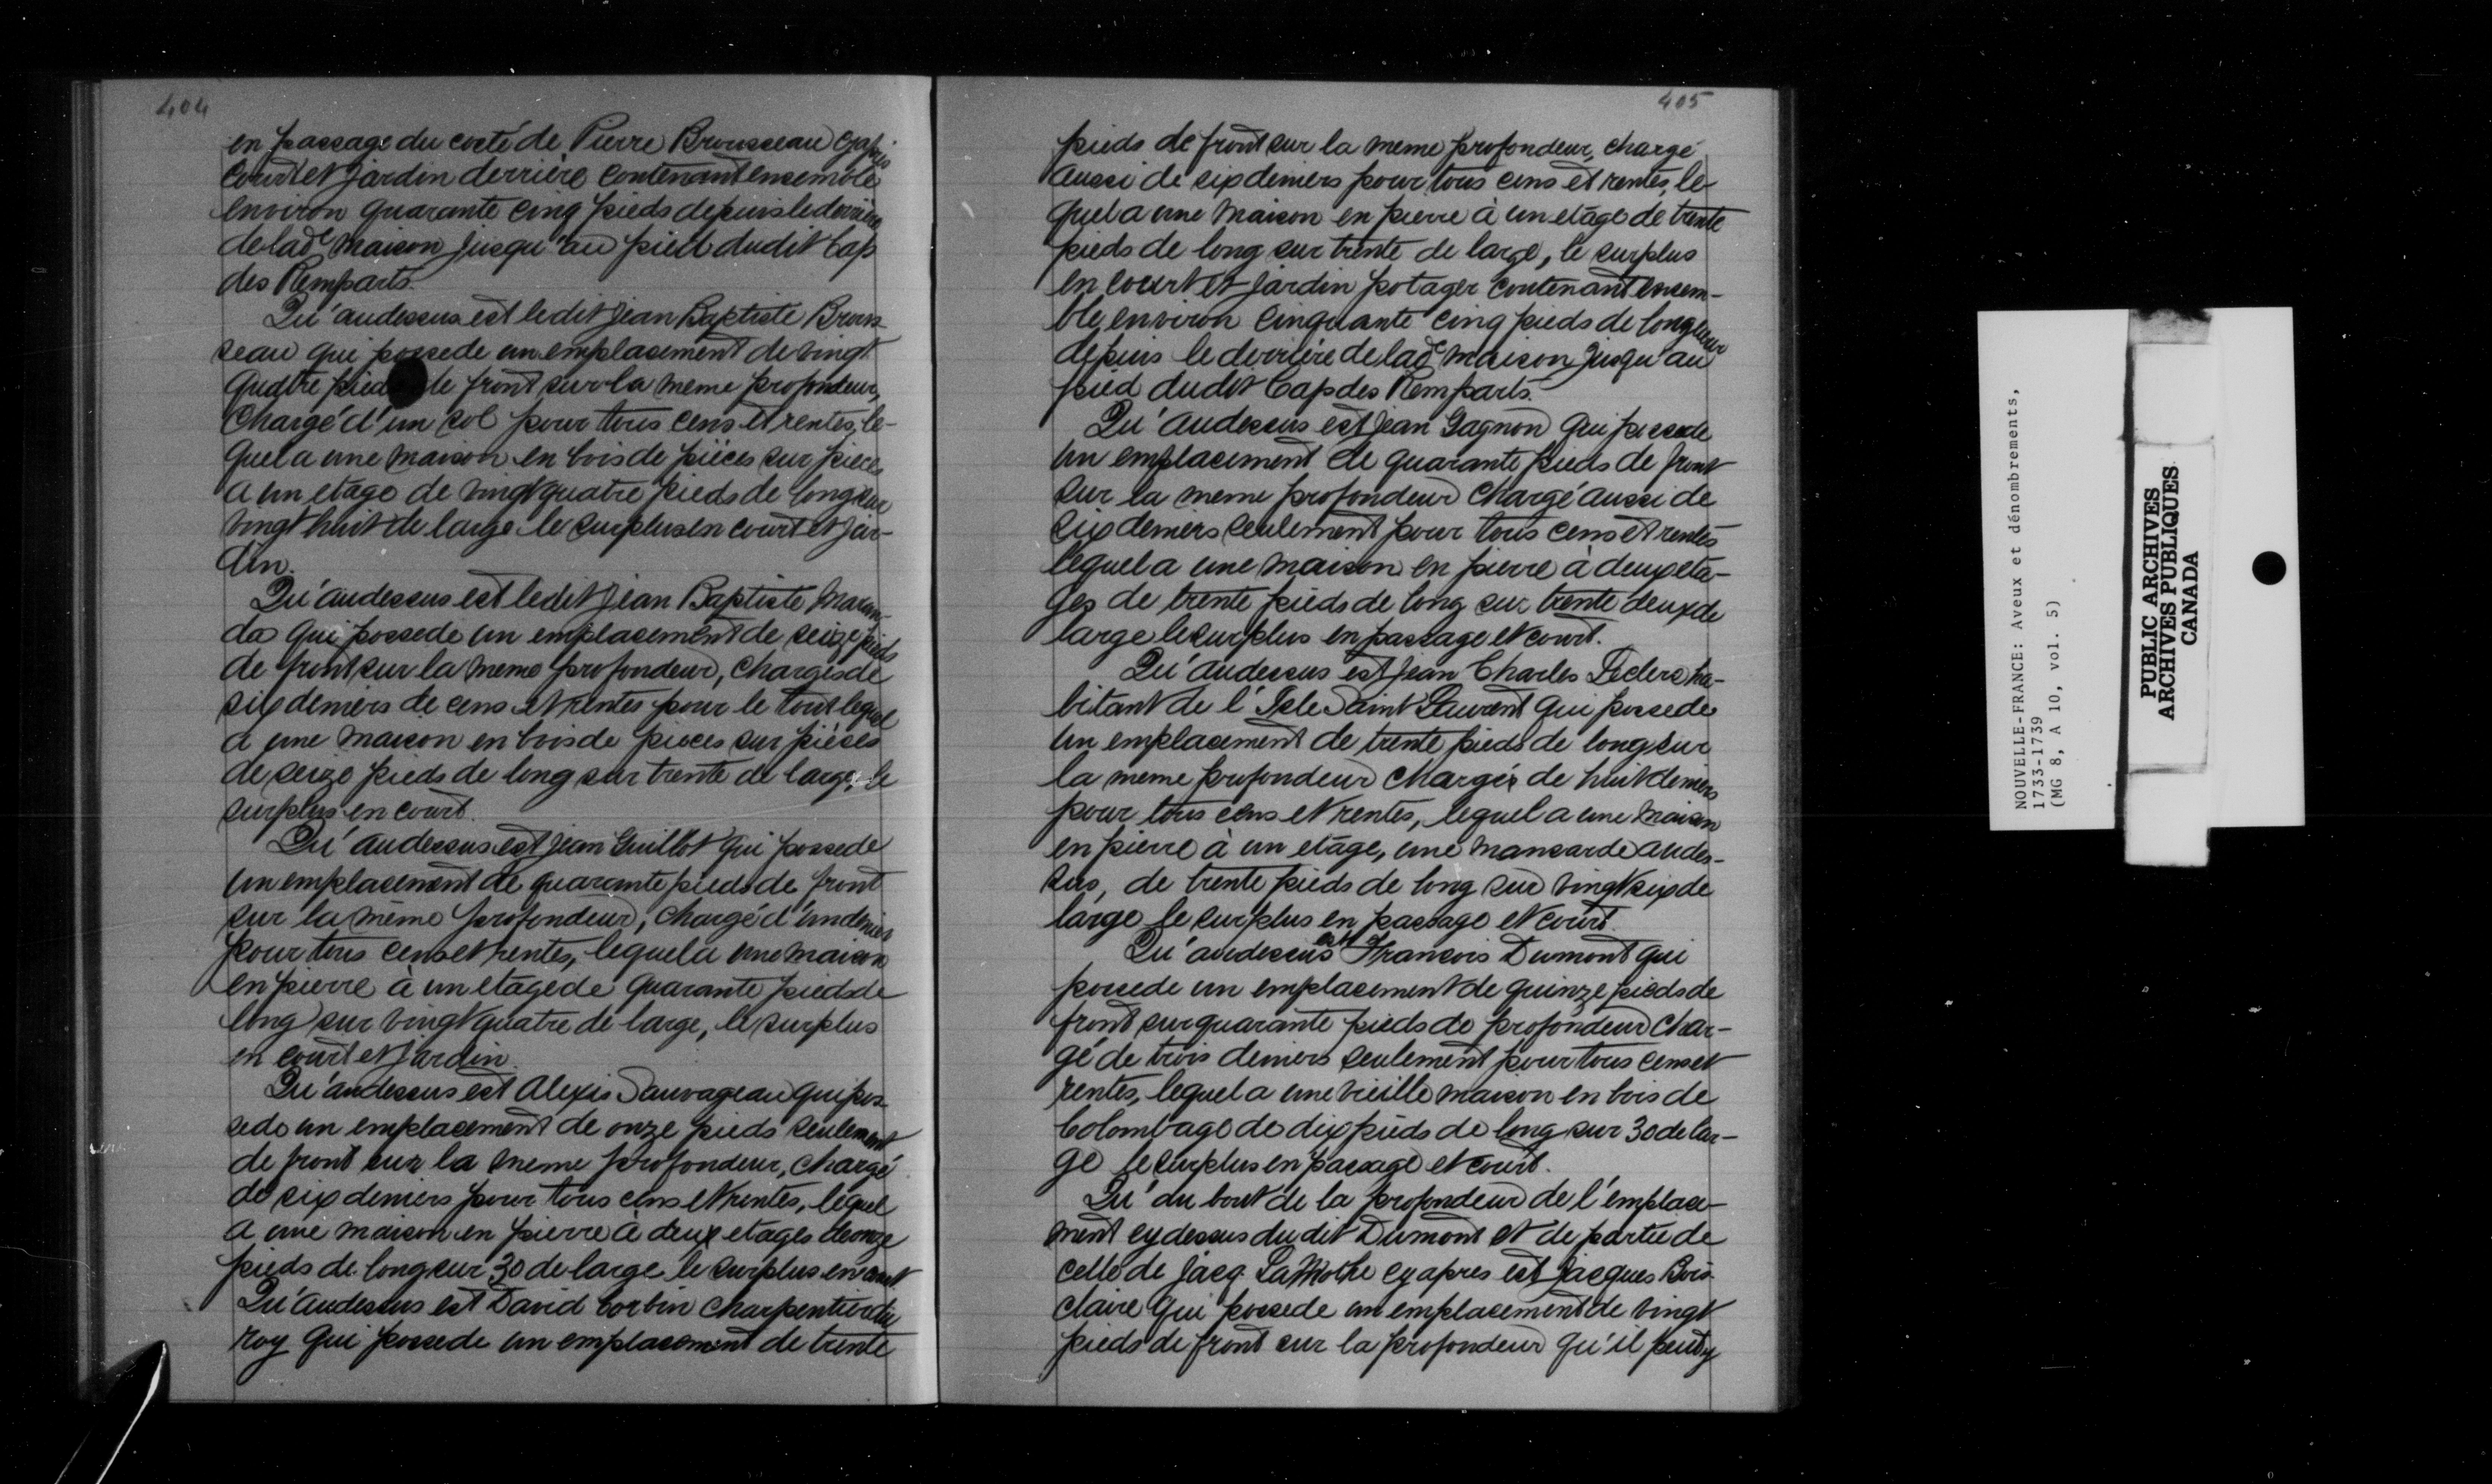 404
en passage du costé de Pierre Brousseau cyapres
court et jardin derriere contenant ensemble
environ quarante cinq pieds depuis le derriere
de lade maison jusqu'au pied dudit Cap
des Remparts.
Qu'audessus est ledit Jean Baptiste Brous-
seau qui possede un emplacement de vingt
quatre pieds de front sur la meme profondeur,
Chargé d'un sol pour tous cens et rentes, le-
quel a une maison en bois de pièces sur pieces
a un etage de vingt quatre pieds de long sur
vingt huit de large le surplus en court et jar-
din.
Qu'audessus est ledit Jean Baptiste Maran-
da qui possede un emplacement de seize pieds
de front sur la meme profondeur, chargés de
six deniers de cens et rentes pour le tout lequel
a une maison en bois de pieces sur pièces
de seize pieds de long sur trente de large, le
surplus en court.
Qu'audessus est Jean Guillot qui possede
un emplacement de quarante pieds de front
sur la même profondeur, chargé d'un denier
pour tous cens et rentes, lequel a une maison
en pierre à un etage de quarante pieds de
long sur vingt quatre de large, le surplus
en court et Jardin.
Qu'audessus est Alexis Sauvageau qui pos-
sede un emplacement de onze pieds seulement
de front sur la meme profondeur, chargé
de six deniers pour tous cens et rentes, lequel
a une maison en pierre à deux etages de onze
pieds de long sur 30 de large le surplus en court
Qu'audessus est David Corbin charpentier du
roy qui possede un emplacement de trente
405
pieds de front sur la meme profondeur, chargé
aussi de six deniers pour tous cens et rentes, le-
quel a une maison en pierre à un etage de trente
pieds de long sur trente de large, le surplus
en court et jardin potager contenant ensem-
ble environ cinquante cinq pieds de longueur
depuis le derrière de lade maison jusqu'au
pied dudit Cap des Remparts.
Qu'audessus est Jean Gagnon qui possede
un emplacement de quarante pieds de front
sur la meme profondeur chargé aussi de
six deniers seulement pour tous cens et rentes
lequel a une maison en pierre à deux eta-
ges de trente pieds de long sur trente deux de
large le surplus en passage et court.
Qu'audessus est Jean Charles Leclerc ha-
bitant de l'Isle Saint Laurent qui possede
un emplacement de trente pieds de long sur
la meme profondeur chargés de huit deniers
pour tous cens et rentes, lequel a une maison
en pierre à un etage, une mansarde audes-
sus, de trente pieds de long sur vingt six de
large le surplus en passage et court.
Qu'audessus est Francois Dumont qui
possede un emplacement de quinze pieds de
front sur quarante pieds de profondeur char-
gé de trois deniers seulement pour tous cens et
rentes, lequel a une vieille maison en bois de
colombage de dix pieds de long sur 30 de lar-
ge le surplus en passage et court.
Qu'au bout de la profondeur de l'emplace-
ment cydessus du dit Dumont et de partie de
celle de Jacq. LaMothe cyapres est Jacques Bois-
claire qui possede un emplacement de vingt
pieds de front sur la profondeur qu'il peut y
NOUVELLE-FRANCE: Aveux et dénombrements,
1733-1739
(MG 8, A 10, vol. 5)
PUBLIC ARCHIVES
ARCHIVES PUBLIQUES
CANADA